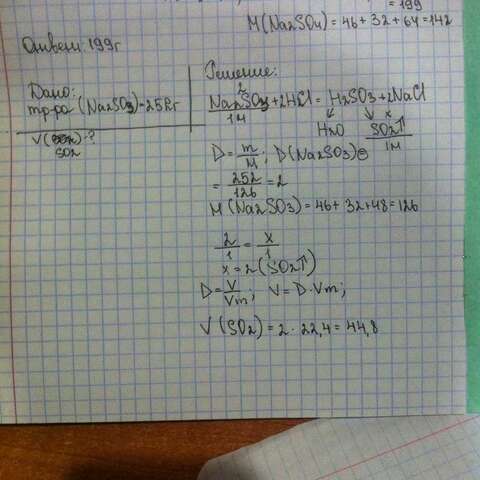 = 199
M(Na2SO4) = 46 + 32 + 64 = 142
Ответ: 199г
Дано:
(Na2SO3) = 252г
V(SO2) - ?
Решение:
2 x
Na2SO3 + 2HCl = H2SO3 + 2NaCl
1M
H2O SO2↑
1M
D = m/M; D(Na2SO3) =
= 252/126 = 2
M(Na2SO3) = 46 + 32 + 48 = 126
2/1 = x/1
x = 2(SO2↑)
D = V/Vm; V = D · Vm;
V(SO2) = 2 · 22,4 = 44,8